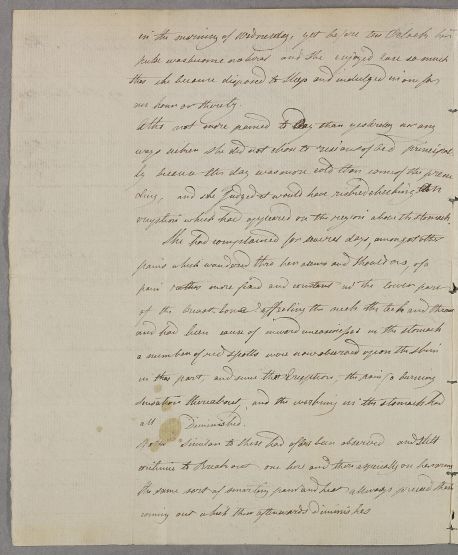 in the morning of Wednesday, yet before two Oclock her
pulse was become natural and she enjoyed ease so much
that she became disposed to sleep and indulged in on for
one hour or thereby.
Altho not more pained to day than yesterday nor any
ways sicker she did not chose to rise out of bed principal
ly because this day was more cold than some of the prece
ding, and she Judged it would have risked checking
eruption which had appeared on the region about the stomach.
She had complained for several days, amongst other
pains which wandered thro her arms and shoulders, of a
pain rather more fixed and constant in the lower part
of the breast bone affecting the neck the back and throat
and had been cause of inward uneasiness in the stomach
a number of red spotts were now observed upon the skin
in that part, and since that Eruption, the pain, a burning
sensation thereabout, and the working in the stomach has
all Diminished.
Spotts similar to these had often been observed and still
continue to break out one here and there especially on her arms
the same sort of smarting pain and heat allways preceed their
coming out which then afterwards diminishes